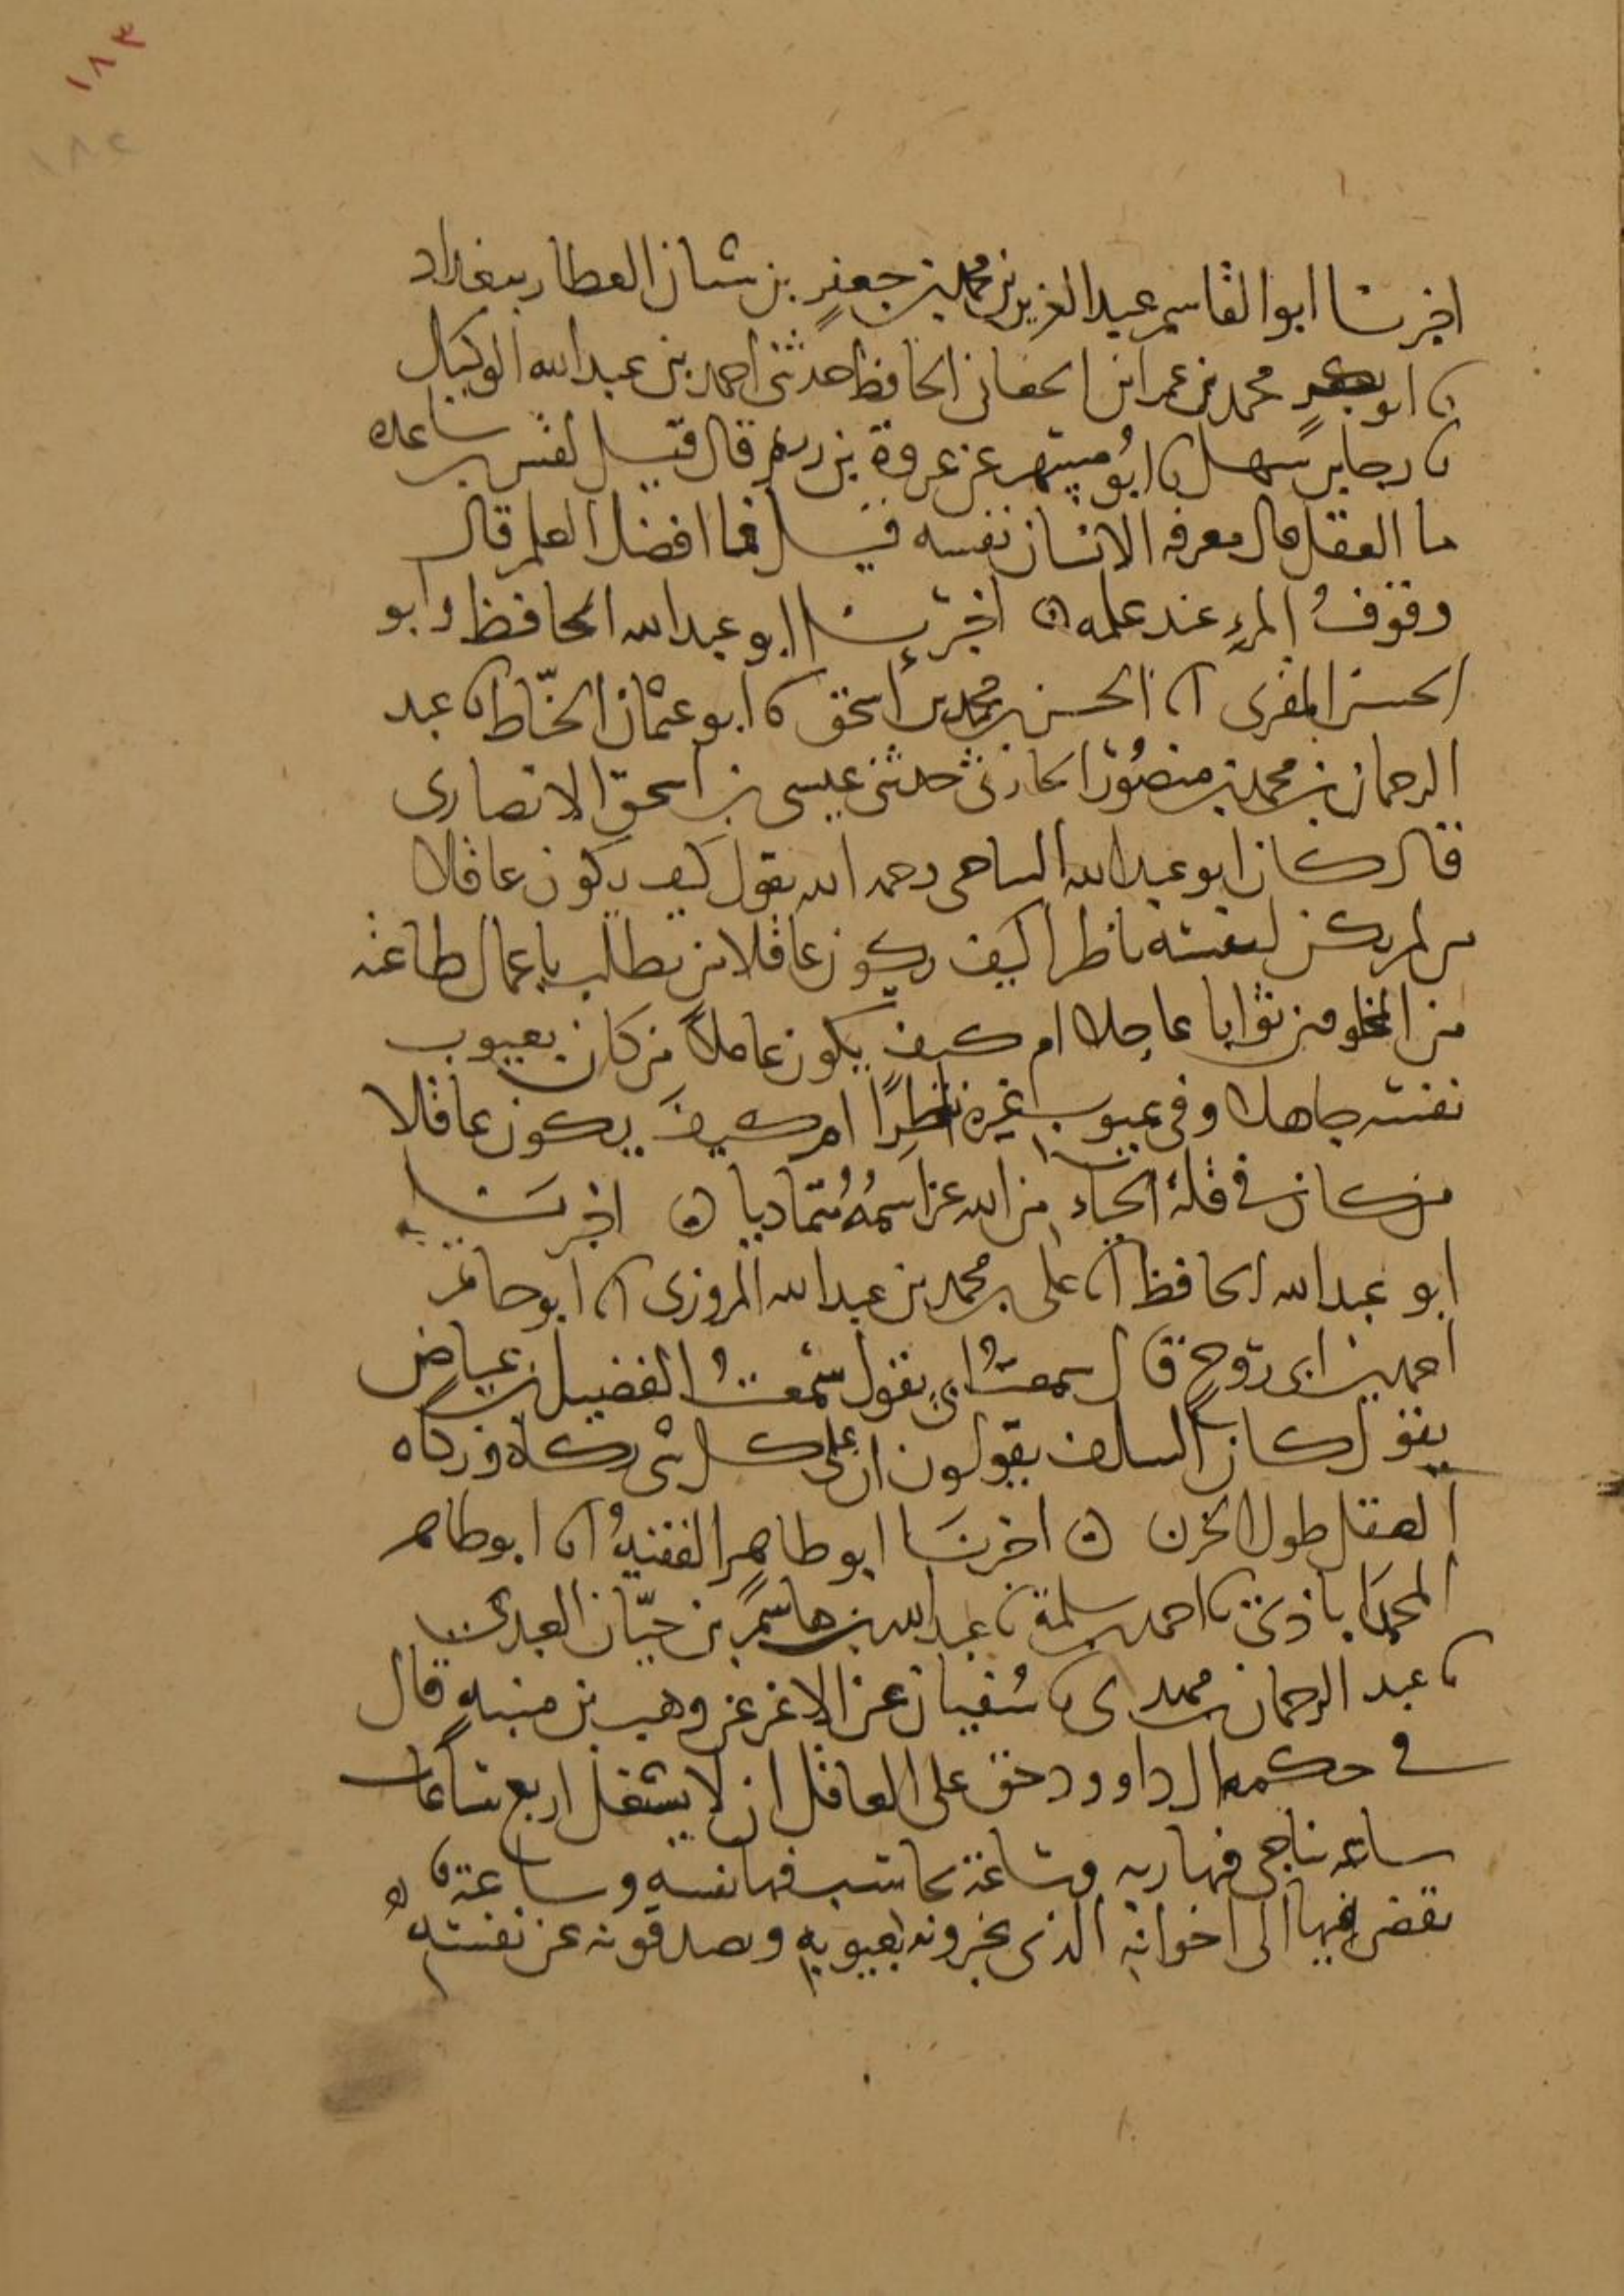 ١٨٣
١٨٤
اخبرنا ابوالقاسم عبدالعزيز بن محمد بن جعفرٍ بن شبان العطار ببغداد
نا ابو محمد بن عمر ابن الجعابى الحافظ حدثنى احمد بن عبدالله الوكيل
نا رجا بن سهل نا ابو مسهر عن عروة بن رويم قال قيل لقس بن ساعده
ما العقل قال معرفه الانسان نفسه قيل فما افضل العلم قال
وقوفُ المرءِ عند علمه ن اخبرنا ابو عبدالله الحافظ وابو
الحسن المقرى انا الحسن بن محمد بن اسحق نا ابو عثمان الخيّاط نا عبد
الرحمان بن محمد بن منصُور الحارثى حدثنى عيسى بن اسحق الانصارى
قال كان ابو عبدالله الساحى رحمه الله يقول كيف يكون عاقلا
من لم يكن لنفسه ناظرا ام كيف يكون عاقلا من يطلب باعمال طاعته
من المخلوقين ثوابا عاجلا ام كيف يكون عاقلاً من كان بعيوب
نفسه جاهلا وفى عيوب غيره ناظِرًا ام كيفَ يكون عاقلا
من كان فى قلة الحياء من الله عز اسمُهُ مُتماديا ن اخبرنا
ابو عبدالله الحافظ انا على بن محمد بن عبدالله المروزى نا ابو حاتم
احمد بن ابى روحٍ قال سمعتُ ابى يقول سمعتُ الفضيل بن عياض
يقول كان السلف يقولون ان على كل شى زكاة وزكاه
العقل طول الحزن ن اخبرنَا ابو طاهرٍ الفقيهُ انا ابو طاهر
المحمدَاباذى نا احمد بن سلمة نا عبدالله بن هاشمٍ بن حيّان العبدى
نا عبد الرحمان بن مهدى نا سُفيان عن الاغر عن وهب بن منبهٍ قال
فى حكمه ال داوود حق على العاقل ان لا يشغل اربع ساعات
ساعه يناجى فيها ربه وساعة يحاسب فيها نفسه وساعة
يفضى فيها الى اخوانه الذى يخبرونه بعيوبه وصدقونه عن نفسه